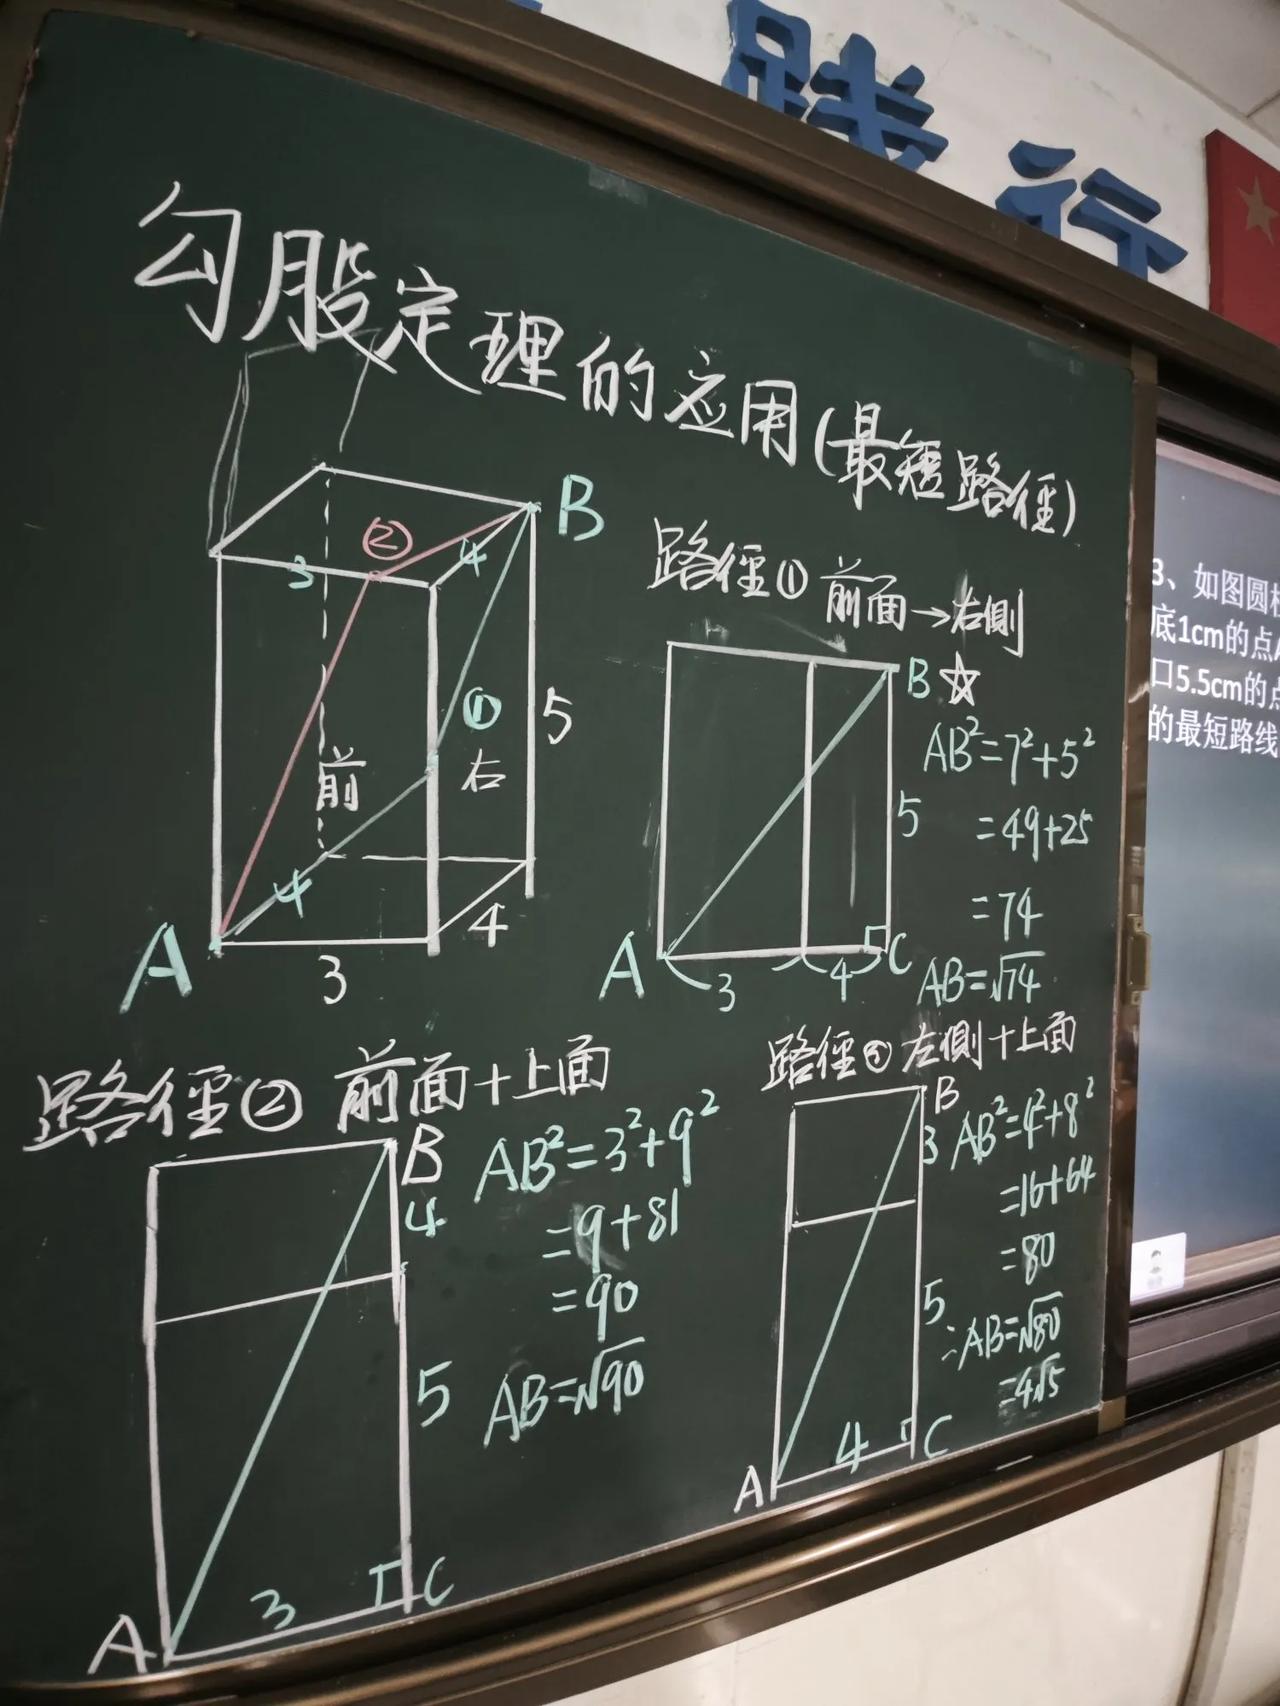 践行
勾股定理的应用(最短路径)
B
②
3
4
①
5
前
右
4
A
3
4
路径① 前面→右侧
B ☆
5
A
3
4
C
AB²=7²+5²
=49+25
=74
AB=√74
路径② 前面+上面
B
4
5
A
3
C
AB²=3²+9²
=9+81
=90
AB=√90
路径③ 左侧+上面
B
3
5
A
4
C
AB²=4²+8²
=16+64
=80
∴AB=√80
=4√5
3、如图圆
底1cm的点
口5.5cm的点
的最短路线